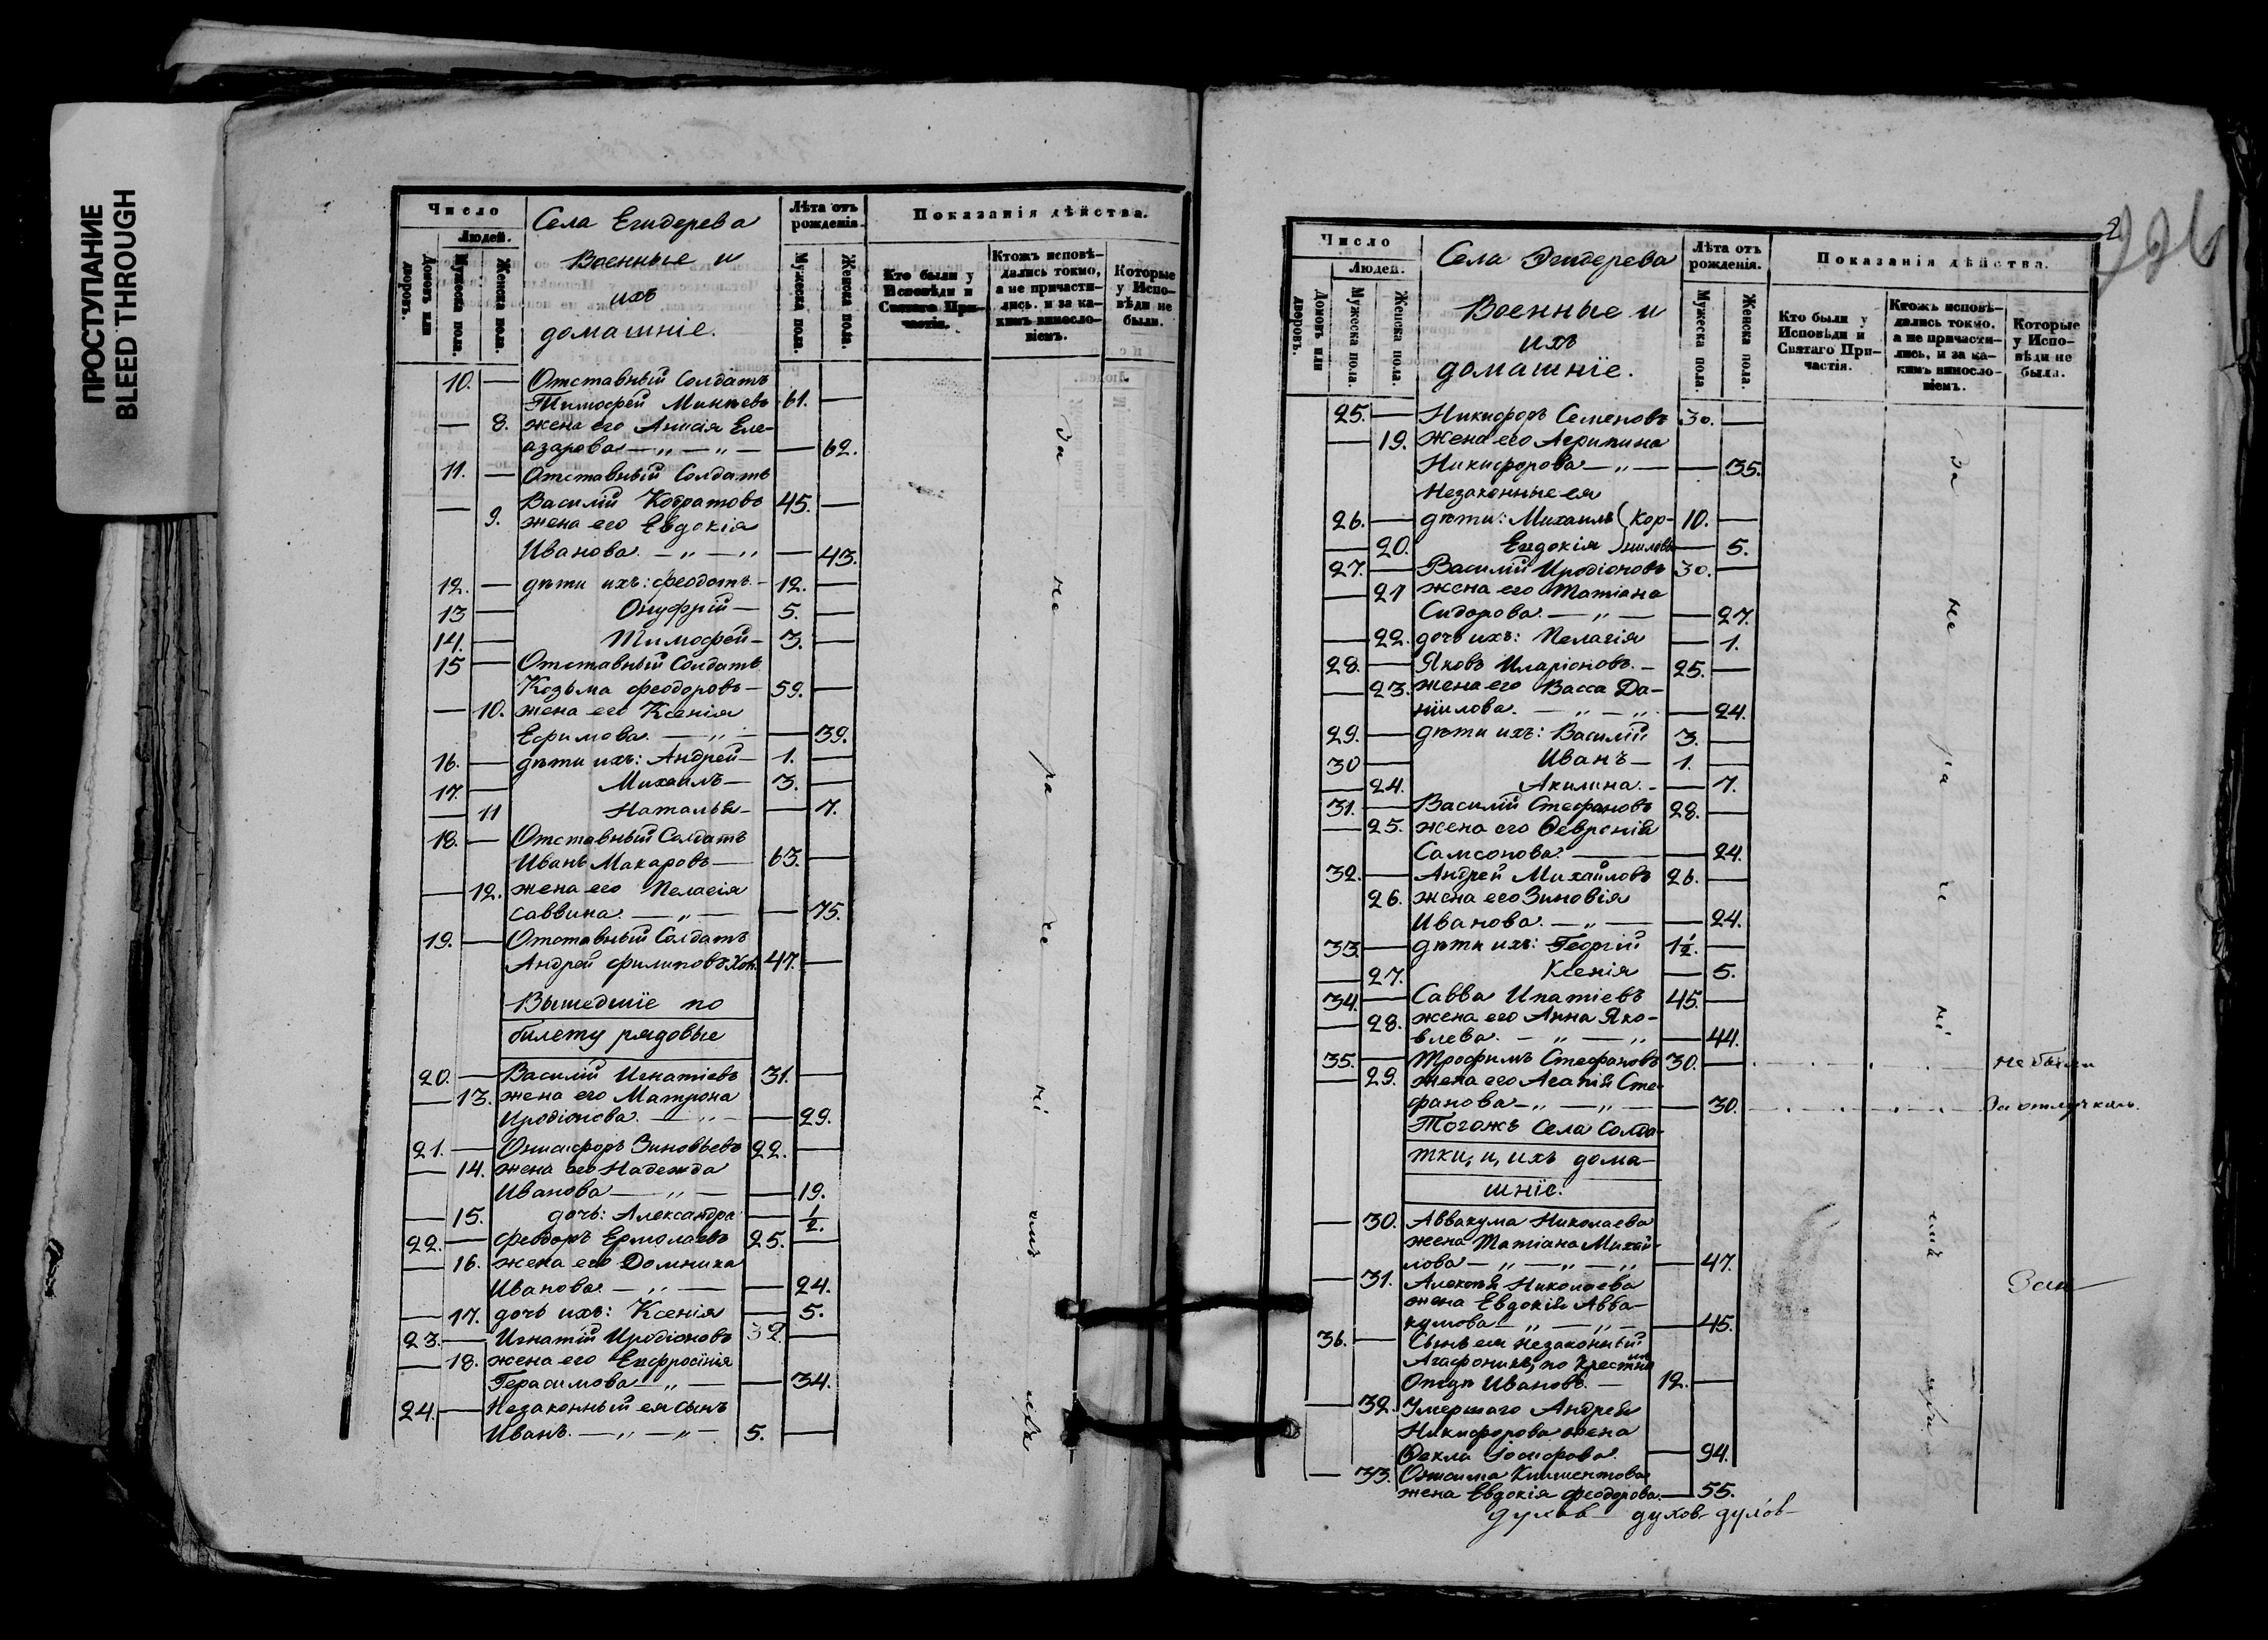 ПРОСТУПАНИЕ
BLEED THROUGH
Число
Людей.
Домовъ или дворовъ.
Мужеска пола.
Женска пола.
Села Егидерева
Военные и
ихъ
домашніе.
Лѣта отъ рожденія.
Мужеска пола.
Женска пола.
Показанія дѣйства.
Кто были у Исповѣди и Святаго Причастія.
Ктожъ исповѣ-
дались токмо,
а не причасти-
лись, и за ка-
кимъ винносло-
віемъ.
Которые
у Испо-
вѣди не
были.
10. — Отставный Солдатъ
Тимофей Минѣевъ 61. —
— 8. жена его Анисія Еле-
азарова — „ — „ — — 62.
11. — Отставный Солдатъ
Василій Кодратовъ 45. —
— 9. жена его Евдокія
Иванова. — „ — „ — 43.
12. — дѣти ихъ: Феодотъ — 12. —
13 — Онуфрій — 5. —
14. — Тимофей — 3. —
15 — Отставный Солдатъ
Козьма Феодоровъ — 59. —
— 10. жена его Ксенія
Ефимова. — „ — — 39.
16. — дѣти ихъ: Андрей — 1. —
17. — Михаилъ — 3. —
— 11 Наталья — — 7.
18. — Отставный Солдатъ
Иванъ Макаровъ — 63. —
— 12. жена его Пелагія
Саввина. — „ — — 75.
19. — Отставный Солдатъ
Андрей Филиповъ 47. —
Вышедшіе по
билету рядовые
20. — Василій Игнатіевъ 31. —
— 13. жена его Матрона
Иродіонова. — „ — — 29.
21. — Онисифоръ Зиновьевъ 22. —
— 14. жена его Надежда
Иванова — „ — — 19.
— 15. дочь: Александра — ½.
22. — Феодоръ Ермолаевъ 25. —
— 16. жена его Домника
Иванова. — „ — — 24.
— 17. дочь ихъ: Ксенія — 5.
23. — Игнатій Иродіоновъ 32. —
— 18. жена его Евфросинія
Герасимова — „ — — 34.
24. — Незаконный ея сынъ
Иванъ. — „ — „ — 5. —
за
не
ра
че
ні
емъ
Число
Людей.
Домовъ или дворовъ.
Мужеска пола.
Женска пола.
Села Эгидерева
Военные и
ихъ
домашніе.
Лѣта отъ рожденія.
Мужеска пола.
Женска пола.
Показанія дѣйства.
Кто были у
Исповѣди и
Святаго При-
частія.
Ктожъ исповѣ-
дались токмо,
а не причасти-
лись, и за ка-
кимъ винносло-
віемъ.
Которые
у Испо-
вѣди не
были.
226
25. — Никифоръ Семеновъ 30. —
— 19. жена его Агрипина
Никифорова — „ — — 35.
Незаконные ея
26. — дѣти: Михаилъ (Кор- 10. —
— 20. Евдокія ) ниловы — 5.
27. — Василій Иродіоновъ 30. —
— 21 жена его Татіана
Сидорова. — „ — — 27.
— 22. дочь ихъ: Пелагія — 1.
28. — Яковъ Иларіоновъ. — 25. —
— 23. жена его Васса Да-
ніилова. — „ — „ — 24.
29. — дѣти ихъ: Василій 3. —
30 — Иванъ — 1. —
— 24. Акилина. — — 7.
31. — Василій Стефановъ 28. —
— 25. жена его Ѳевронія
Самсонова. — — 24.
32. — Андрей Михайловъ 26. —
26. жена его Зиновія
Иванова. — „ — — 24.
33. — дѣти ихъ: Георгій 1½. —
— 27. Ксенія — 5.
34. — Савва Ипатіевъ 45. —
— 28. жена его Анна Яко-
влева. — „ — „ — 44.
35. — Трофимъ Стефановъ 30. — не были
— 29. жена его Агапія Сте-
фанова — „ — „ — — 30. За отлучкою.
Тогожъ Села Солда-
тки, и, ихъ дома-
шніе.
— 30. Аввакума Николаева
жена Татіана Михай-
лова — „ — „ — „ — 47.
— 31. Алексѣя Николаева
жена Евдокія Авва-
кумова — „ — „ — — 45.
36. — Сынъ ея незаконный
Агафоникъ, по крестном
Отцѣ Ивановъ. — 12. —
— 32. Умершаго Андрея
Никифорова жена
Ѳекла Іосифова. — 94.
— 33. Онисима Климентова
жена Евдокія Феодорова. — 55.
за
не
ра
че
ні
емъ